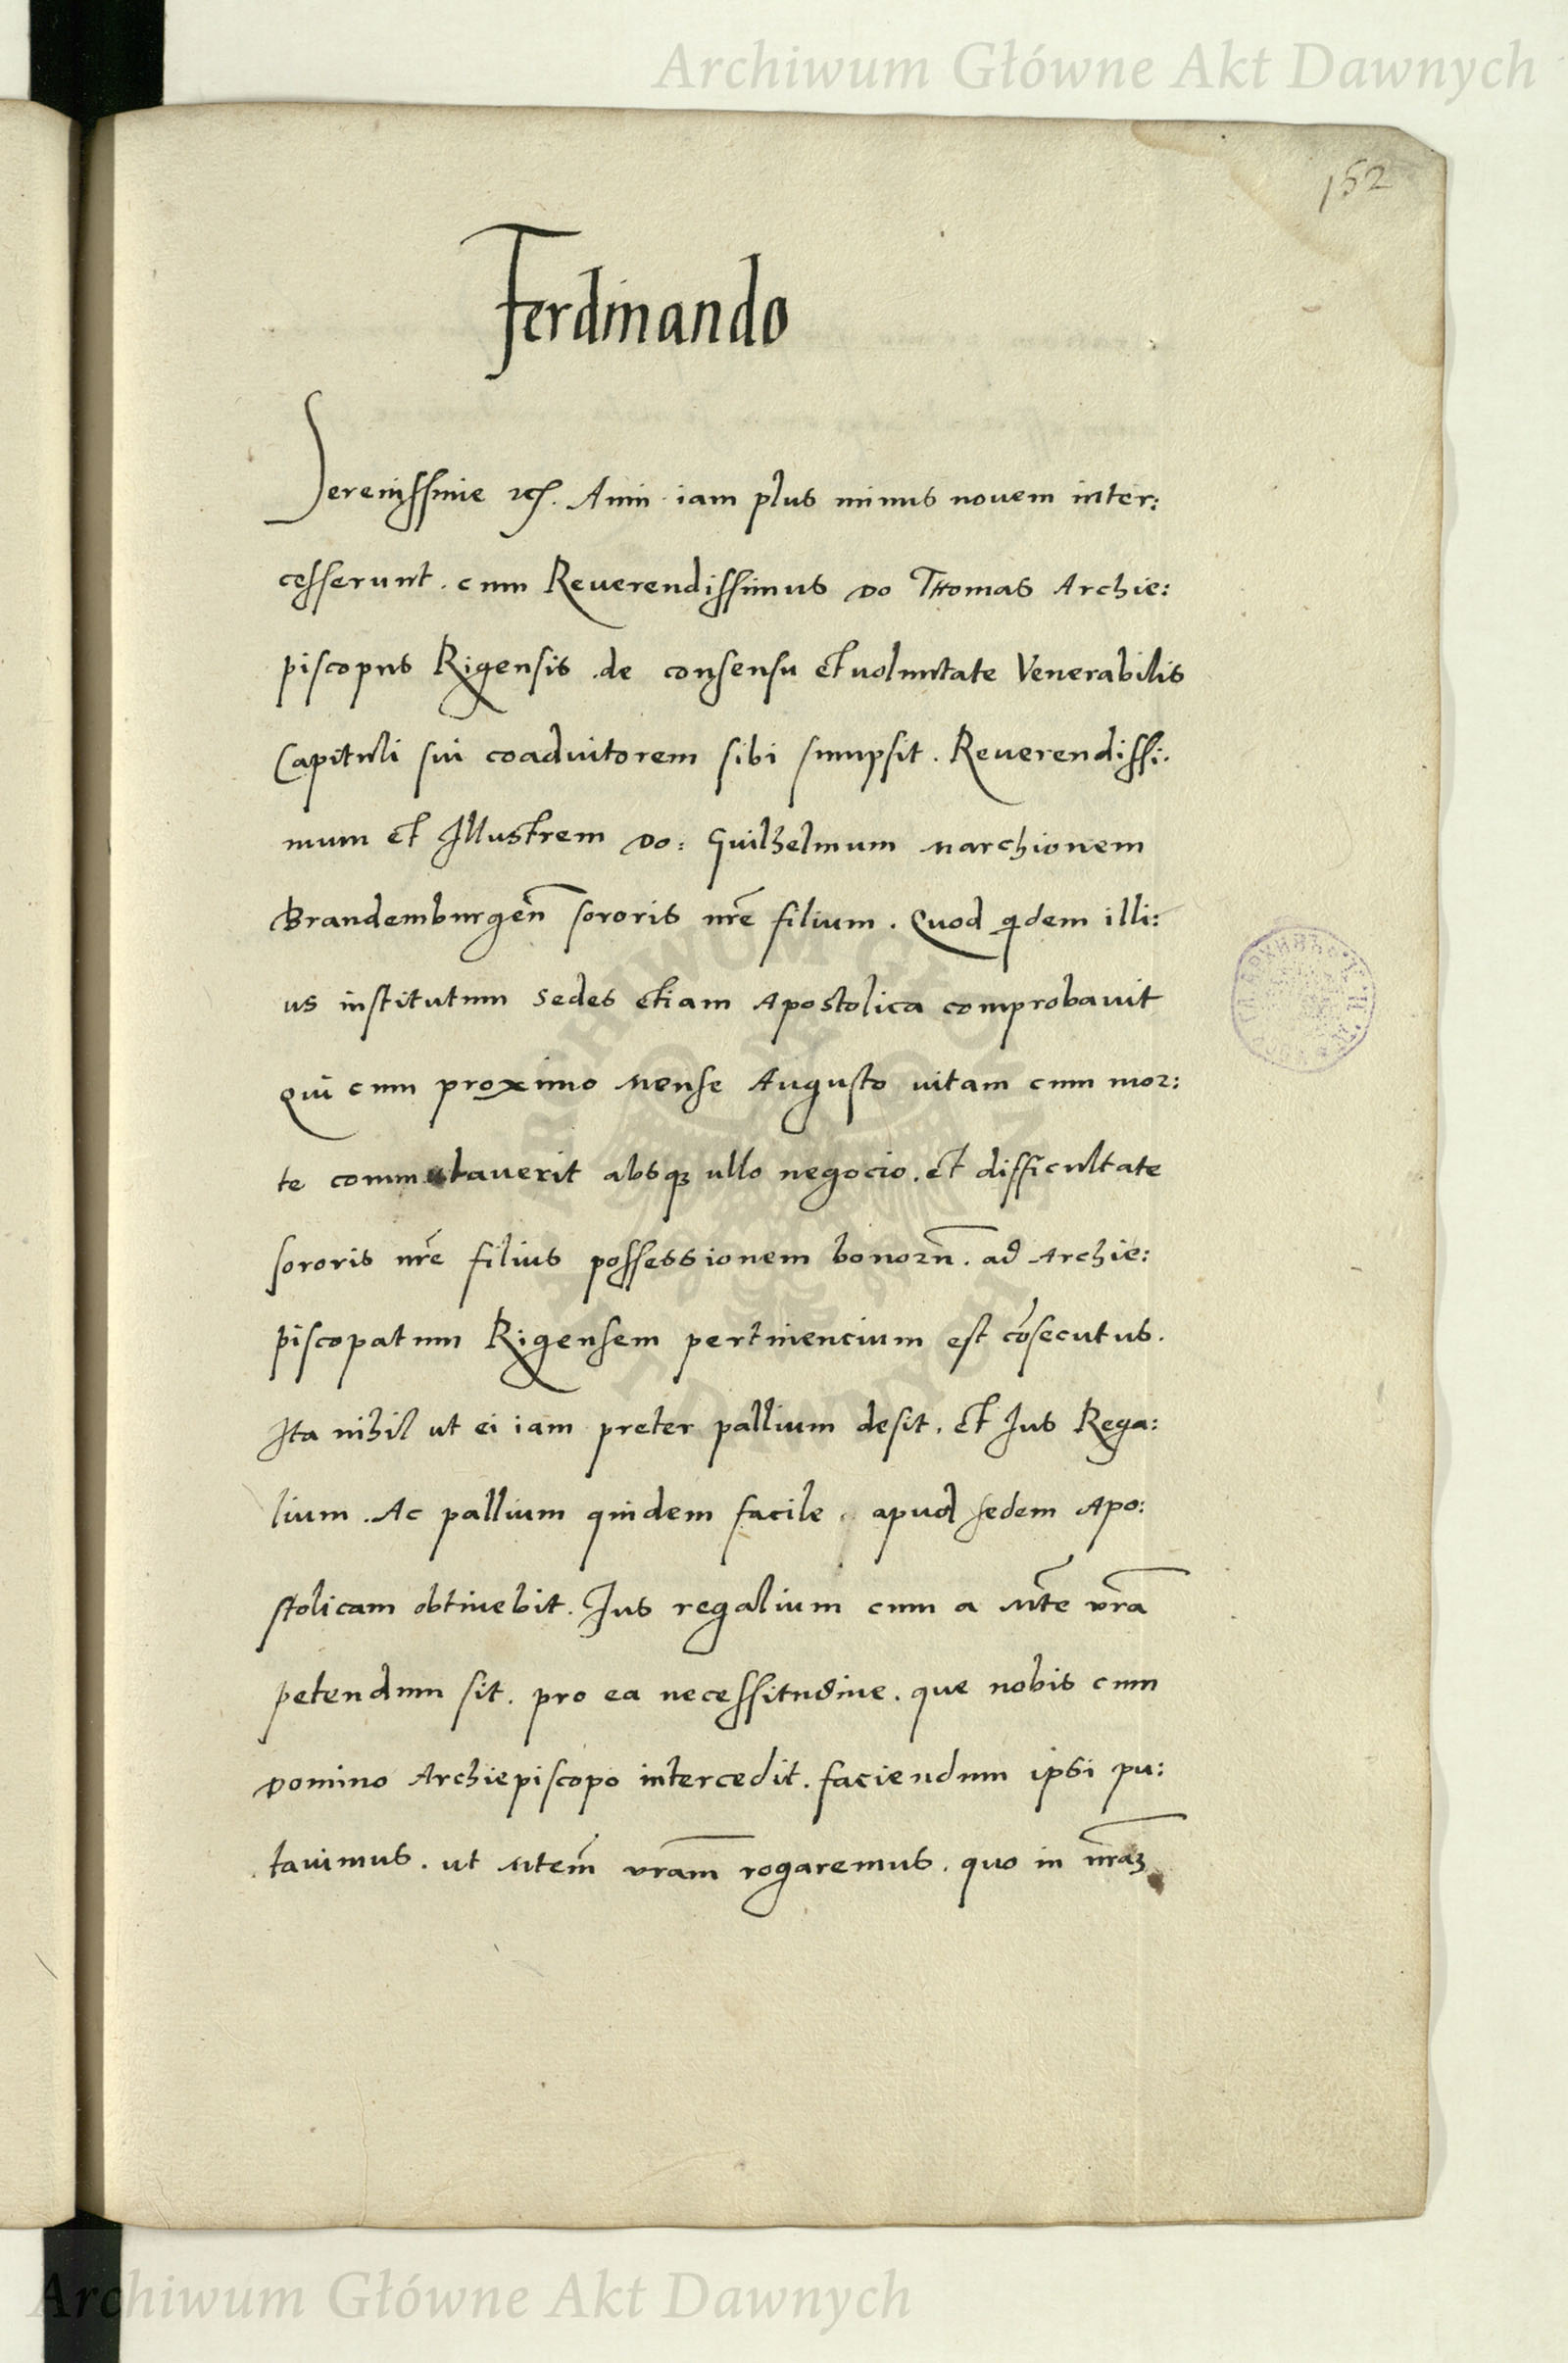 Archiwum Główne Akt Dawnych
152
Ferdinando
Serenissime etc. Anni iam plus minus novem inter:
cesserunt . cum Reuerendissimus Do Thomas Archie:
piscopus Rigensis de consensu et uoluntate Venerabilis
Capituli sui coadiutorem sibi sumpsit . Reuerendissi.
mum et Illustrem Do: Guilhelmum marchionem
Brandemburgeñ sororis nr̃e filium . Quod qidem illi:
us institutum sedes etiam Apostolica comprobauit
Qui cum proximo mense Augusto uitam cum mor:
te commutauerit absq3 ullo negocio . et difficultate
sororis nr̃e filius possessionem bonorũ . ad Archie:
piscopatum Rigensem pertinencium est cõsecutus .
Ita nihil ut ei iam preter pallium desit . et Ius Rega:
lium . Ac pallium quidem facile apud sedem Apo:
stolicam obtinebit . Ius regalium cum a Mte vr̃a
petendum sit . pro ea necessitudine . que nobis cum
Domino Archiepiscopo intercedit . faciendum ipsi pu:
tauimus . ut Mtem vr̃am rogaremus . quo in nr̃a3
ARCHIWUM GŁÓWNE
AKT DAWNYCH
Archiwum Główne Akt Dawnych